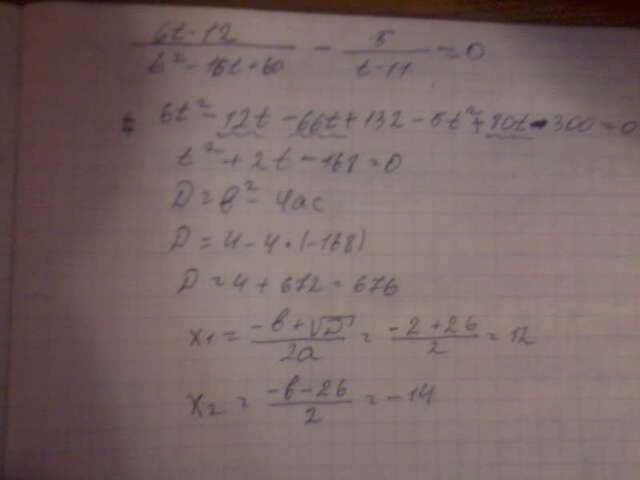 6t-12 / t²-16t+60 - 5 / t-11 = 0
6t²-12t-66t+132-5t²+80t-300=0
t²+2t-168=0
D=b²-4ac
D=4-4·(-168)
D=4+672=676
x₁ = -b+√D / 2a = -2+26 / 2 = 12
x₂ = -b-26 / 2 = -14